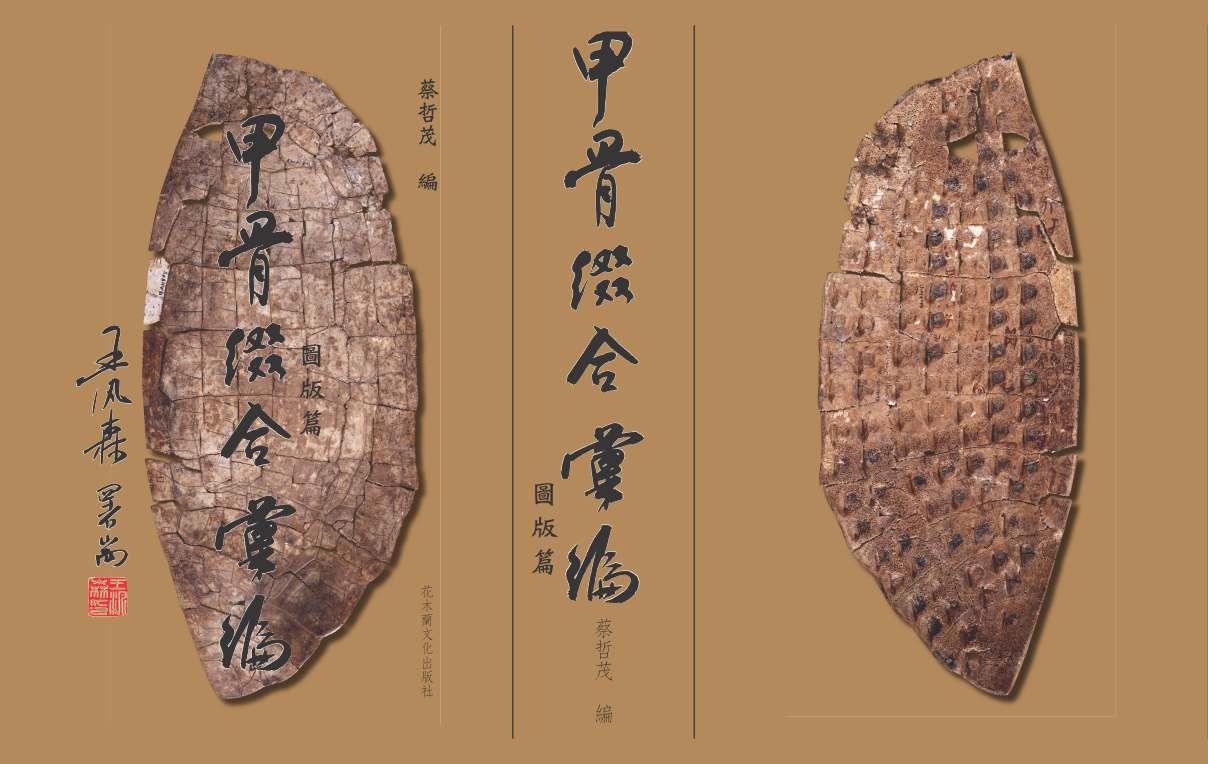 蔡哲茂　編
甲骨綴合彙編
圖版篇
花木蘭文化出版社
甲骨綴合彙編
圖版篇
蔡哲茂　編